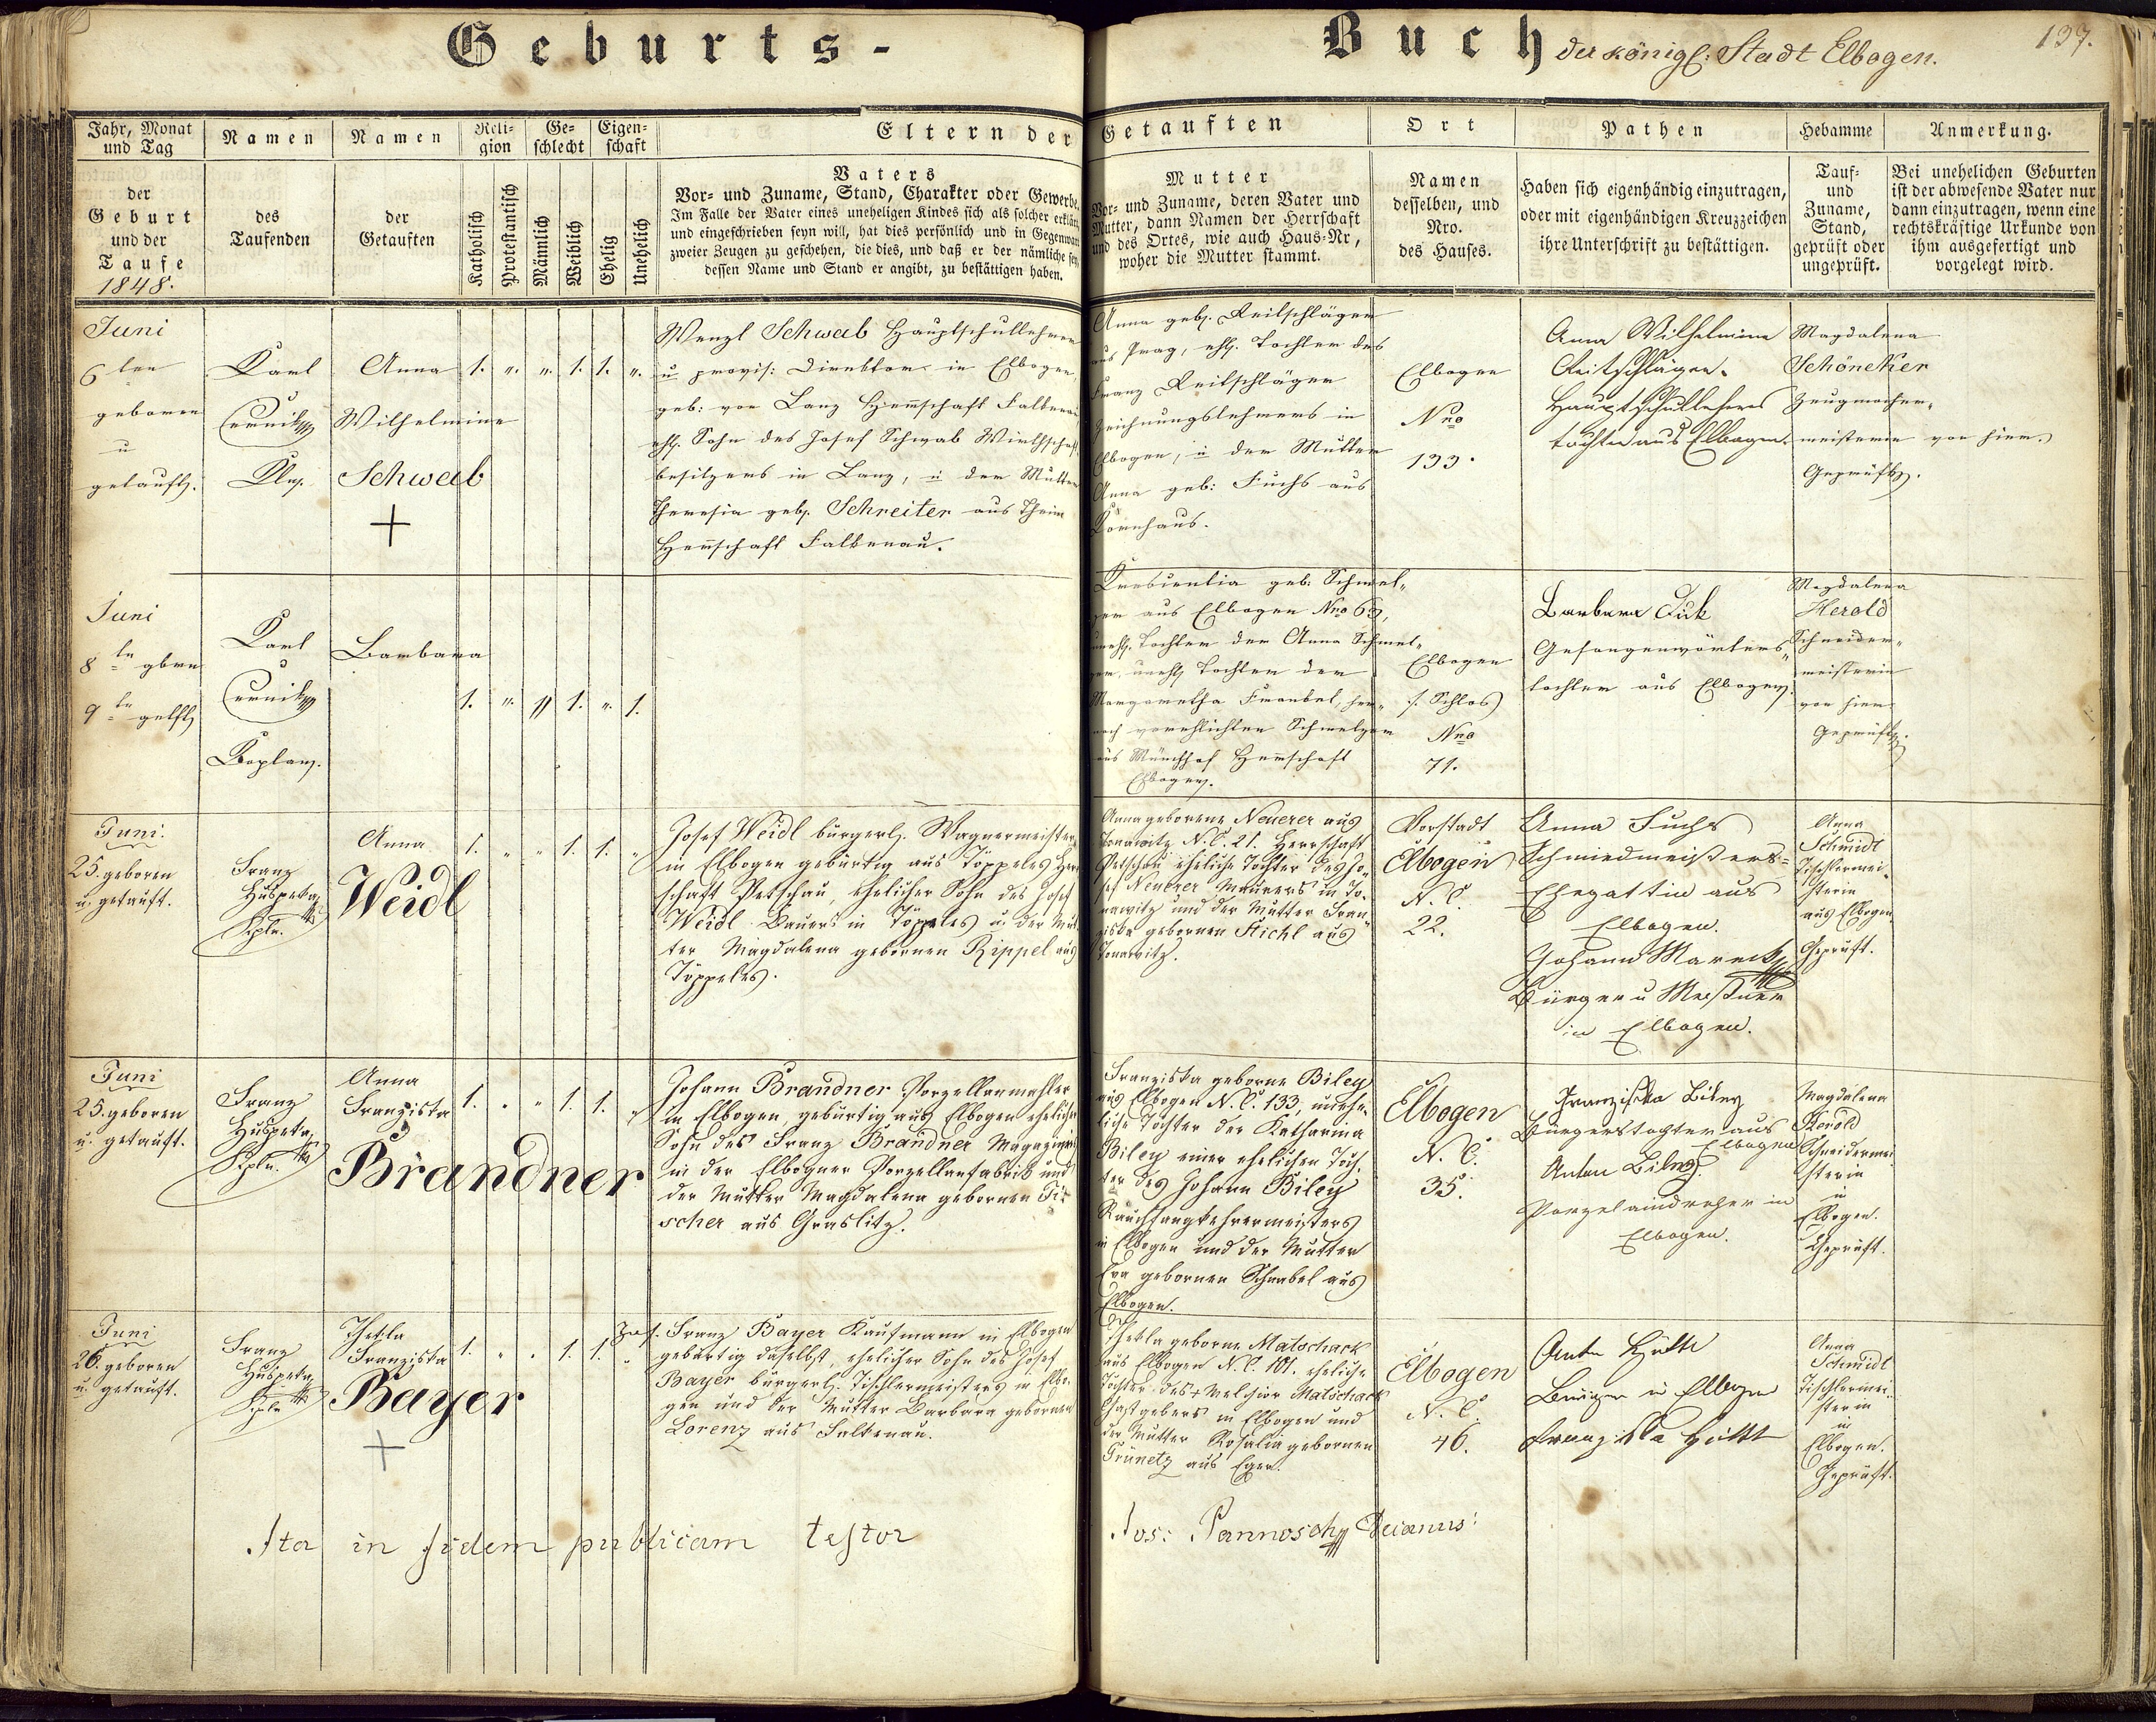 Geburts-
Buch der königl: Stadt Elbogen.
137.
Jahr, Monat und Tag
der
Geburt
und der
Taufe
1848.
Namen
des
Taufenden
Namen
der
Getauften
Reli-
gion
Katholisch
Protestantisch
Ge-
schlecht
Männlich
Weiblich
Eigen-
schaft
Ehelig
Unehelich
Eltern der Getauften
Vaters
Vor- und Zuname, Stand, Charakter oder Gewerbe.
Im Falle der Vater eines uneheligen Kindes sich als solcher erklärt,
und eingeschrieben seyn will, hat dies persönlich und in Gegenwart
zweier Zeugen zu geschehen, die dies, und daß er der nämliche sey,
dessen Name und Stand er angibt, zu bestättigen haben.
Mutter
Vor- und Zuname, deren Vater und
Mutter, dann Namen der Herrschaft
und des Ortes, wie auch Haus-Nr,
woher die Mutter stammt.
Ort
Namen
desselben, und
Nro.
des Hauses.
Pathen
Haben sich eigenhändig einzutragen,
oder mit eigenhändigen Kreuzzeichen
ihre Unterschrift zu bestättigen.
Hebamme
Tauf-
und
Zuname,
Stand,
geprüft oder
ungeprüft.
Anmerkung.
Bei unehelichen Geburten
ist der abwesende Vater nur
dann einzutragen, wenn eine
rechtskräftige Urkunde von
ihm ausgefertigt und
vorgelegt wird.
Juni
6ten
geboren
u
getauft.
Karl
Černik
Anna
Wilhelmine
Schwab
1. " " 1. 1. "
Wenzl Schwab Hauptschullehrer
u provis: Direktor in Elbogen,
geb: von Lanz Herrschaft Falkenau
ehl. Sohn des Josef Schwab Wirthschafts
besitzers in Lanz, u der Mutter
Theresia geb. Schreiter aus
Herrschaft Falkenau.
Anna geb. Reitschläger
aus Prag, ehl. Tochter des
Franz Reitschläger
Zeichnungslehrers in
Elbogen, u der Mutter
Anna geb: Fuchs aus
Kornhaus.
Elbogen
Nro
133.
Anna Wilhelmine
Reitschläger.
Hauptschullehrers
tochter aus Elbogen.
Magdalena
Schöneker
Zeugmacher-
meisterin von hier.
Geprüft.
Juni
8tn gbrn
9tn getft
Karl
Černik
Koplan.
Barbara
1. " " 1. " 1.
Kreszentia geb: Schmel-
zer aus Elbogen Nro 63,
unehl. Tochter der Anna Schmel-
zer, unehl Tochter der
Margaretha Frankel, her-
nach verehlichten Schmelzer
aus Münchhof Herrschaft
Elbogen.
Elbogen
(: Schlos)
Nro
71.
Barbara
Gefangenwärters
tochter aus Elbogen.
Magdalena
Herold
Schneider-
meisterin
von hier
Geprüft.
Juni.
25. geboren
u. getauft.
Franz
Huspeka
Kpln.
Anna
Weidl
1. " " 1. 1. "
Josef Weidl bürgerl. Wagnermeister
in Elbogen gebürtig aus Töppeles Herr
schaft Petschau, ehelicher Sohn des Josef
Weidl Bauers in Töppeles u. der Mut
ter Magdalena gebornen Rippel aus
Töppeles.
Anna geborene Neuerer aus
Donawitz N.C. 21. Herrschaft
Petschau eheliche Tochter des Jo-
sef Neuerer Maurers in Do-
nawitz und der Mutter Fran-
ziska gebornen Stichl aus
Donawitz.
Vorstadt
Elbogen
N. C.
22.
Anna Fuchs
Schmiedmeisters-
Ehegattin aus
Elbogen.
Johann Mareck
Bürger u
in Elbogen.
Anna
Schmidt
Tischlermei-
sterin
aus Elbogen.
Geprüft.
Juni
25. geboren
u. getauft.
Franz
Huspeka
Kpln.
Anna
Franziska
Brandner
1. " " 1. 1. "
Johann Brandner Porzellanmahler
in Elbogen, gebürtig aus Elbogen ehelicher
Sohn des Franz Brandner Magazineurs
in der Elbogner Porzellanfabrik und
der Mutter Magdalena gebornen Fi-
scher aus Graslitz.
Franziska geborne Biley
aus Elbogen N.C. 133, unehe-
liche Tochter der Katharina
Biley einer ehelichen Toch-
ter des Johann Biley
Rauchfangkehrermeisters
in Elbogen und der Mutter
Eva gebornen Schnabel aus
Elbogen.
Elbogen
N. C.
35.
Franziska Biley
Bürgerstochter aus
Elbogen
Anton Biley
Porzelaindreher in
Elbogen.
Magdalena
Herold
Schneidermei-
sterin
in
Elbogen.
Geprüft.
Juni
26. geboren
u. getauft.
Franz
Huspeka
Kpln
Thekla
Franziska
Bayer
1. " " 1. 1. "
Franz Bayer Kaufmann in Elbogen
gebürtig daselbst, ehelicher Sohn des Josef
Bayer bürgerl. Tischlermeisters in Elbo-
gen und der Mutter Barbara gebornen
Lorenz aus Falkenau.
Thekla geborne Matschack
aus Elbogen N.C. 101. eheliche
Tochter des + Melchior Matschack
Gastgebers in Elbogen und
der Mutter Rosalia gebornen
Grünetz aus Eger.
Elbogen
N. C.
46.
Anton Hütl
Bürger in Elbogen
Franziska Hüttl
Anna
Schmidt
Tischlermei-
sterin
in
Elbogen.
Geprüft.
Ita in fidem publicam testor
Jos: Pannosch Decanus: